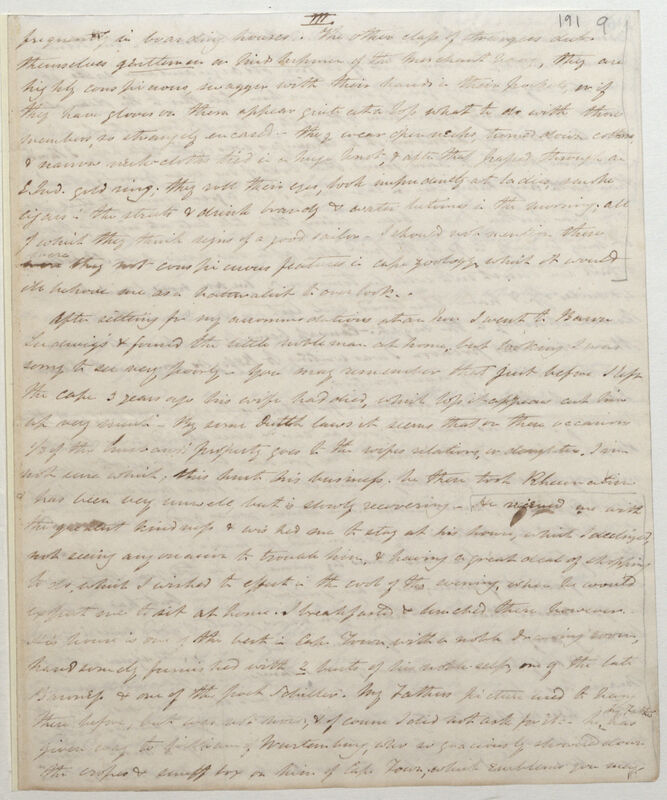 III
191 9
frequently in boarding houses. The other class of strangers dub
themselves gentlemen or Midshipmen of the Merchant Navy, they are
highly conspicuous, swagger with their hands in their pockets, or if
they have gloves on them appear quite at a loss what to do with those
members, so strangely encased - they wear open necks, turned down collars,
& narrow neck-cloths tied in a huge knot, & after that passed through an
E. Ind. gold ring. they roll their eyes, look impudently at ladies, smoke
cigars in the streets & drink brandy & water betimes in the morning, all
of which they think signs of a good sailor - I should not mention these
were they not conspicuous features in Cape zoology which it would
ill behove me as a naturalist to overlook.
After settling for my accommodations at an Inn I went to Baron
Ludwigs & found the little nobleman at home, but looking I was
sorry to see very poorly - You may remember that just before I left
the Cape 3 years ago his wife had died, which loss it appears cut him
up very much - By some Dutch laws it seems that on these occasions
1/3 of the husbands property goes to the wifes relations or daughter, I am
not sure which; this hurt his business. he then took Rheumatism
& has been very unwell but is slowly recovering - He received me with
the greatest kindness & wished me to stay at his house, which I declined,
not seeing any occasion to trouble him, & having a great deal of shopping
to do, which I wished to effect in the cool of the evening, when he would
expect me to sit at home. I breakfasted & lunched there however.
His house is one of the best in Cape Town, with a noble drawing room,
handsomely furnished with 2 busts of his noble self, one of the late
Baroness & one of the poet Schiller. My Fathers picture used to hang
there before, but was not now, & of course I did not ask for it - he my Father has
given way to William of Wurtemburg who so graciously showered down
the crosses & snuff box on him of Cape Town, which emblems you may